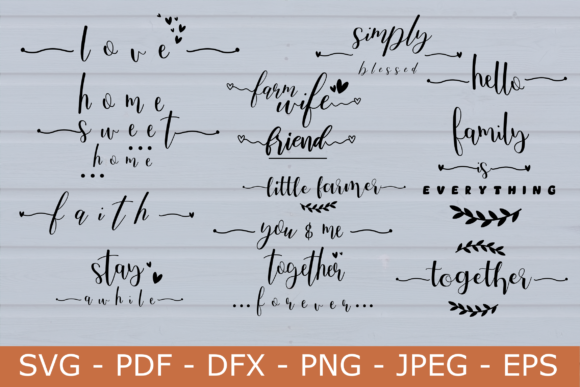 love
home
sweet
home
faith
stay
awhile
farm
wife
friend
little farmer
you & me
together
...forever...
simply
blessed
hello
family
is
EVERYTHING
together
SVG - PDF - DFX - PNG - JPEG - EPS